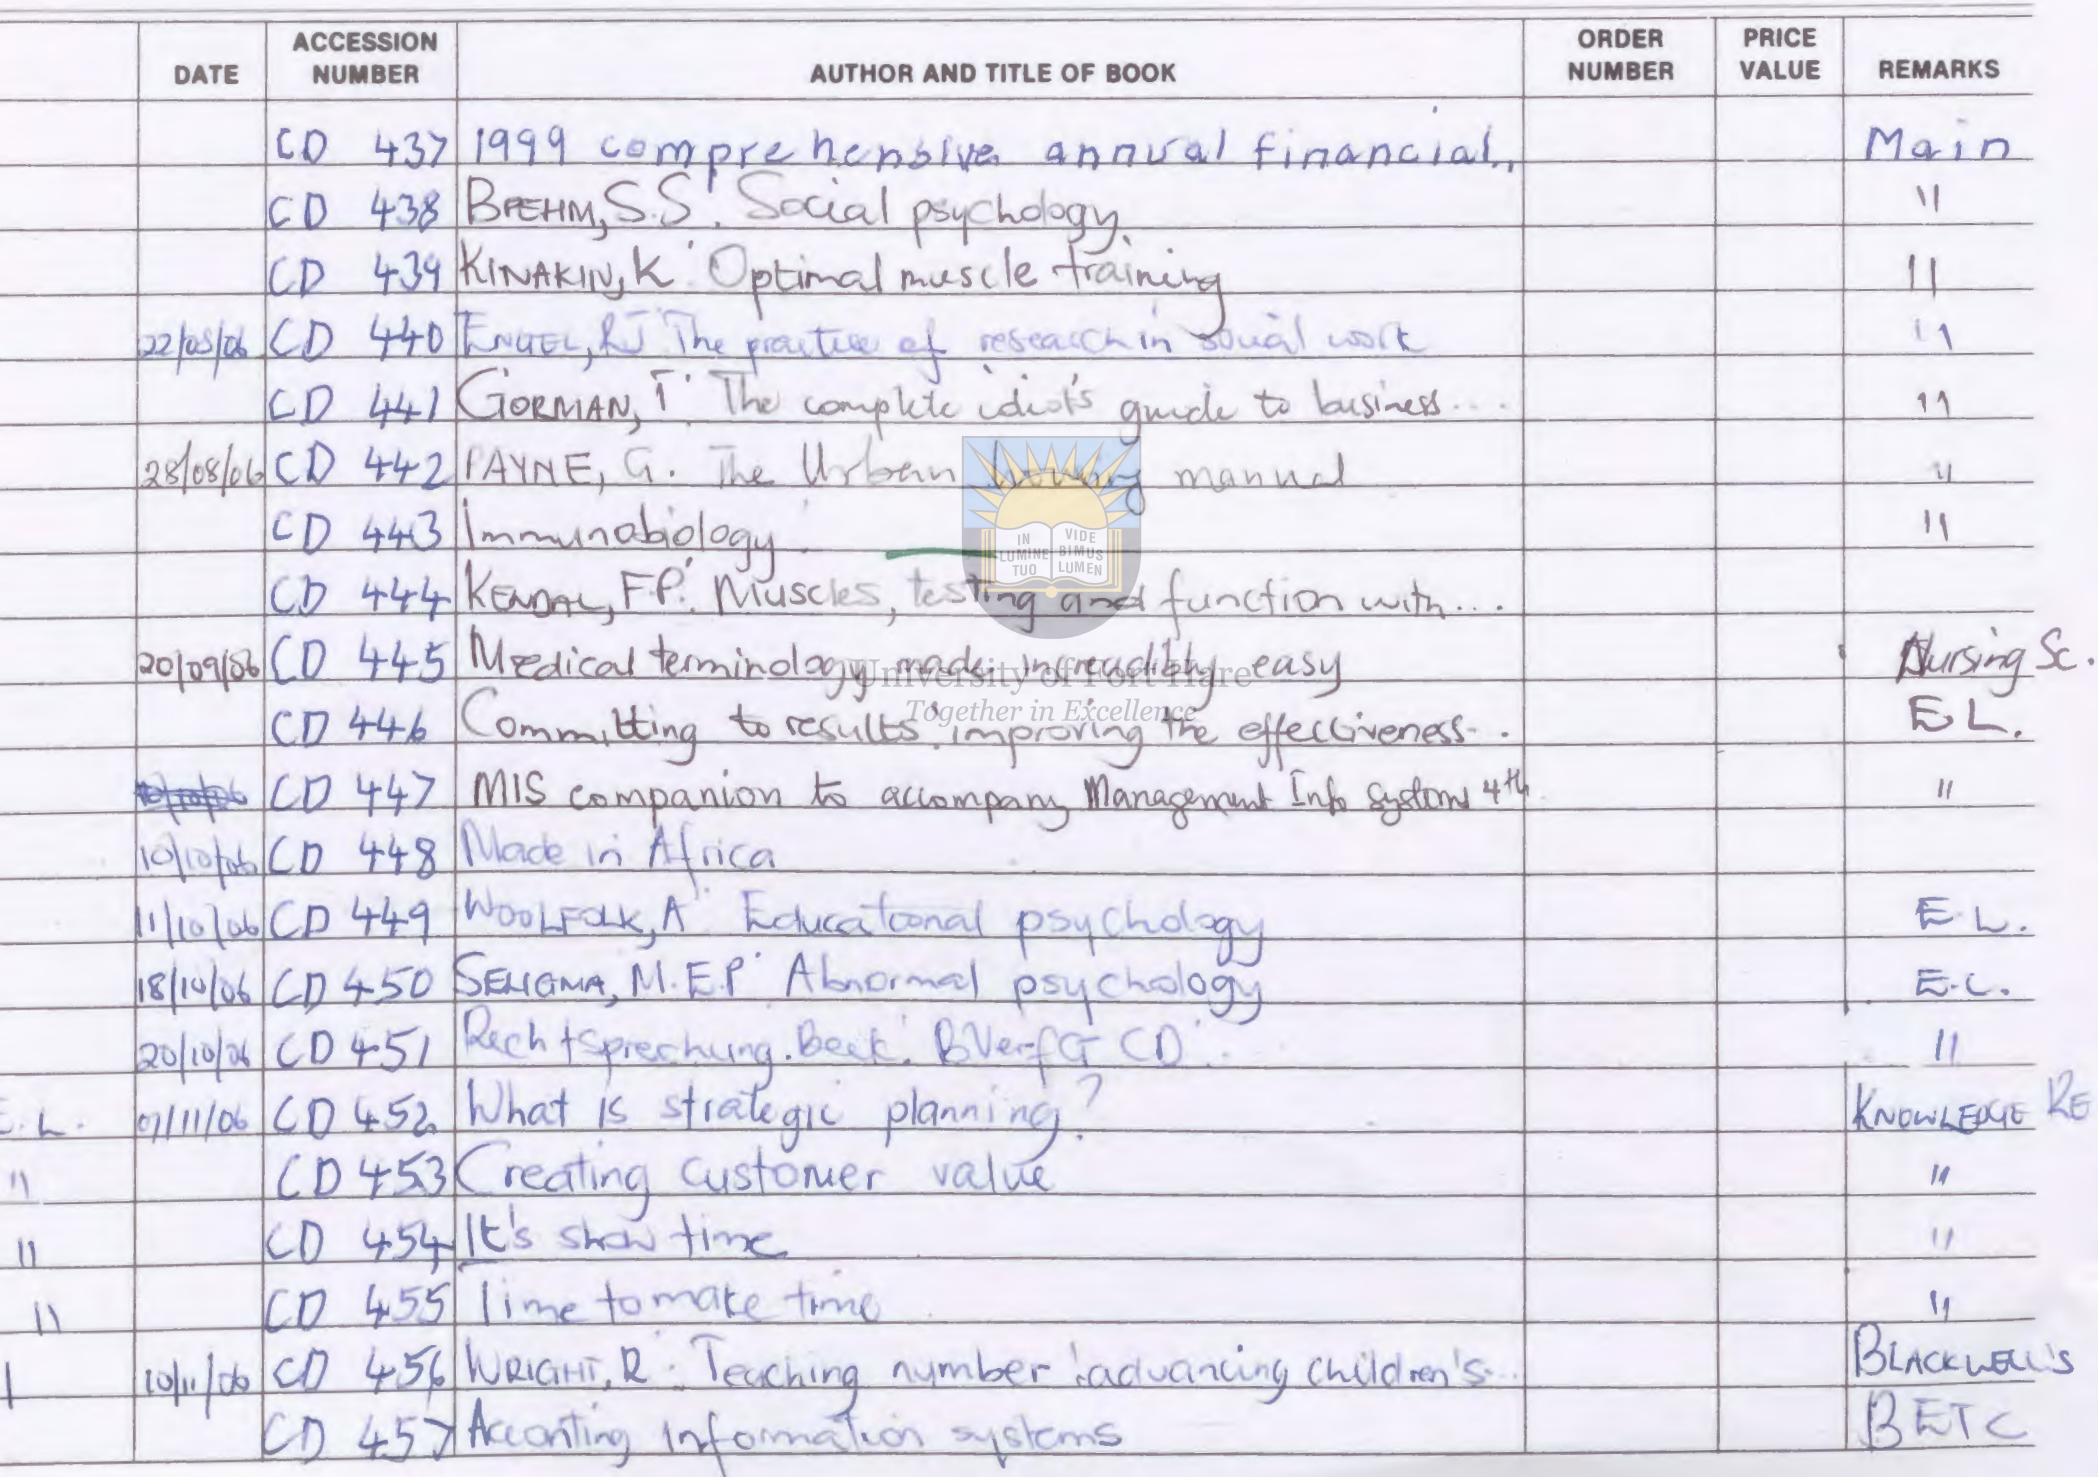 DATE ACCESSION NUMBER AUTHOR AND TITLE OF BOOK ORDER NUMBER PRICE VALUE REMARKS
CD 437 1999 comprehensive annual financial.. Main
CD 438 BREHM, S.S. Social psychology "
CD 439 KINAKIN, K. Optimal muscle training "
22/08/06 CD 440 ENGEL, RJ The practice of research in social work "
CD 441 GORMAN, T. The complete idiot's guide to business... "
28/08/06 CD 442 PAYNE, G. The Urban housing manual "
CD 443 Immunobiology "
IN LUMINE TUO VIDE BIMUS LUMEN
CD 444 KENDAL, F.P. Muscles, testing and function with...
20/09/06 CD 445 Medical terminology made incredibly easy Nursing Sc.
University of Fort Hare
Together in Excellence
CD 446 Committing to results: improving the effectiveness.. E L.
10/10/06 CD 447 MIS companion to accompany Management Info Systems 4th "
10/10/06 CD 448 Made in Africa
11/10/06 CD 449 WOOLFOLK, A. Educational psychology E L.
18/10/06 CD 450 SELIGMA, M.E.P. Abnormal psychology E.L.
20/10/06 CD 451 Rechtsprechung. Beck. BVerfG CD "
E.L. 07/11/06 CD 452 What is strategic planning? KNOWLEDGE RE
" CD 453 Creating customer value "
" CD 454 It's show time "
" CD 455 Time to make time "
10/11/06 CD 456 WRIGHT, R. Teaching number: advancing children's... BLACKWELL'S
CD 457 Acconting information systems BETC